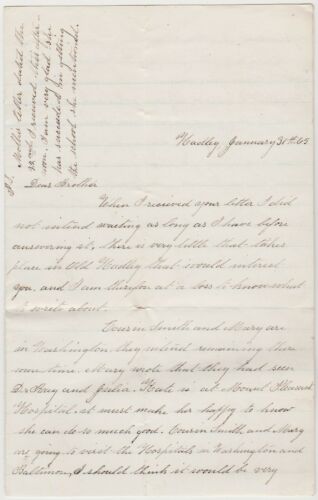 P.S. Mollies letter dated the
22nd I received this after-
noon. I am very glad she
has succeeded in getting
the school she mentioned.
Hadley, January 31st 65
Dear Brother
When I recieved your letter I did
not intend waiting as long as I have before
answering it, there is very little that takes
place in Old Hadley that would interest
you, and I am therefore at a loss to know what
to write about.
Cousin Smith and Mary are
in Washington they intend remaining there
some time. Mary wrote that they had seen
Dr Hay and Julia. Kate is at Mount Pleasant
Hospital. it must make her happy to know
she can do so much good. Cousin Smith and Mary
are going to visit the Hospitals in Washington and
Baltimore, I should think it would be very